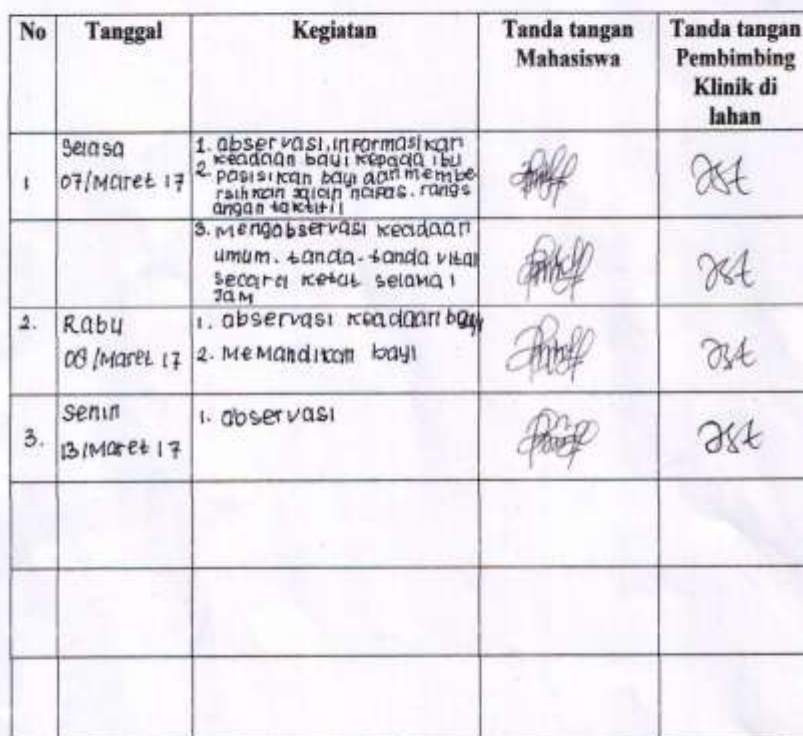 No Tanggal Kegiatan Tanda tangan Mahasiswa Tanda tangan Pembimbing Klinik di lahan
Selasa
1 07/Maret 17
1. observasi, informasikan
keadaan bayi kepada ibu
2. posisikan bayi dan membe
rsihkan jalan nafas. rangs
angan taktitil
3. Mengobservasi keadaan
umum. tanda-tanda vital
secara ketat selama 1
jam
2. Rabu
08/Maret 17
1. observasi keadaan bayi
2. Memandikan bayi
3. Senin
13/Maret 17
1. observasi